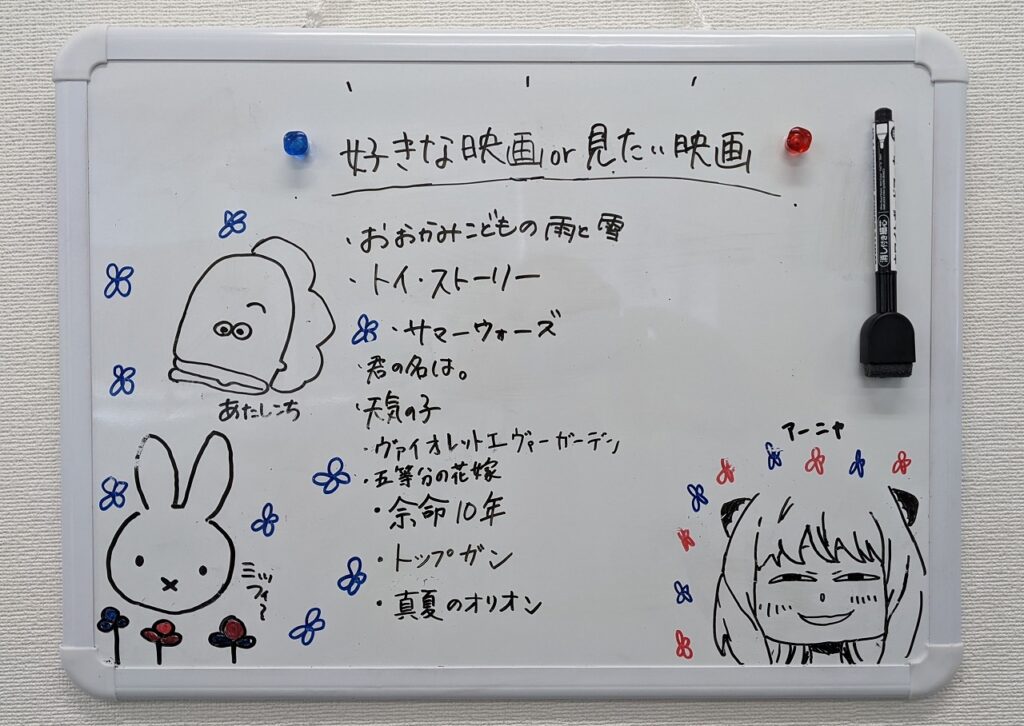 好きな映画or見たい映画
・おおかみこどもの雨と雪
・トイ・ストーリー
・サマーウォーズ
・君の名は。
・天気の子
・ヴァイオレットエヴァーガーデン
・五等分の花嫁
・余命10年
・トップガン
・真夏のオリオン
あたしンち
ミッフィー
アーニャ